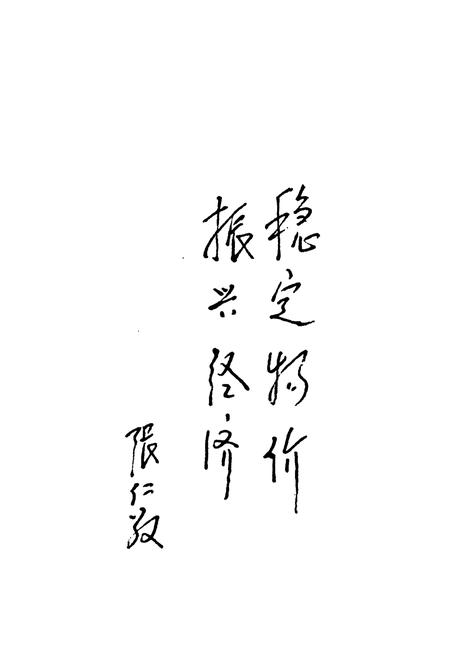 稳定物价
振兴经济
张仁敬